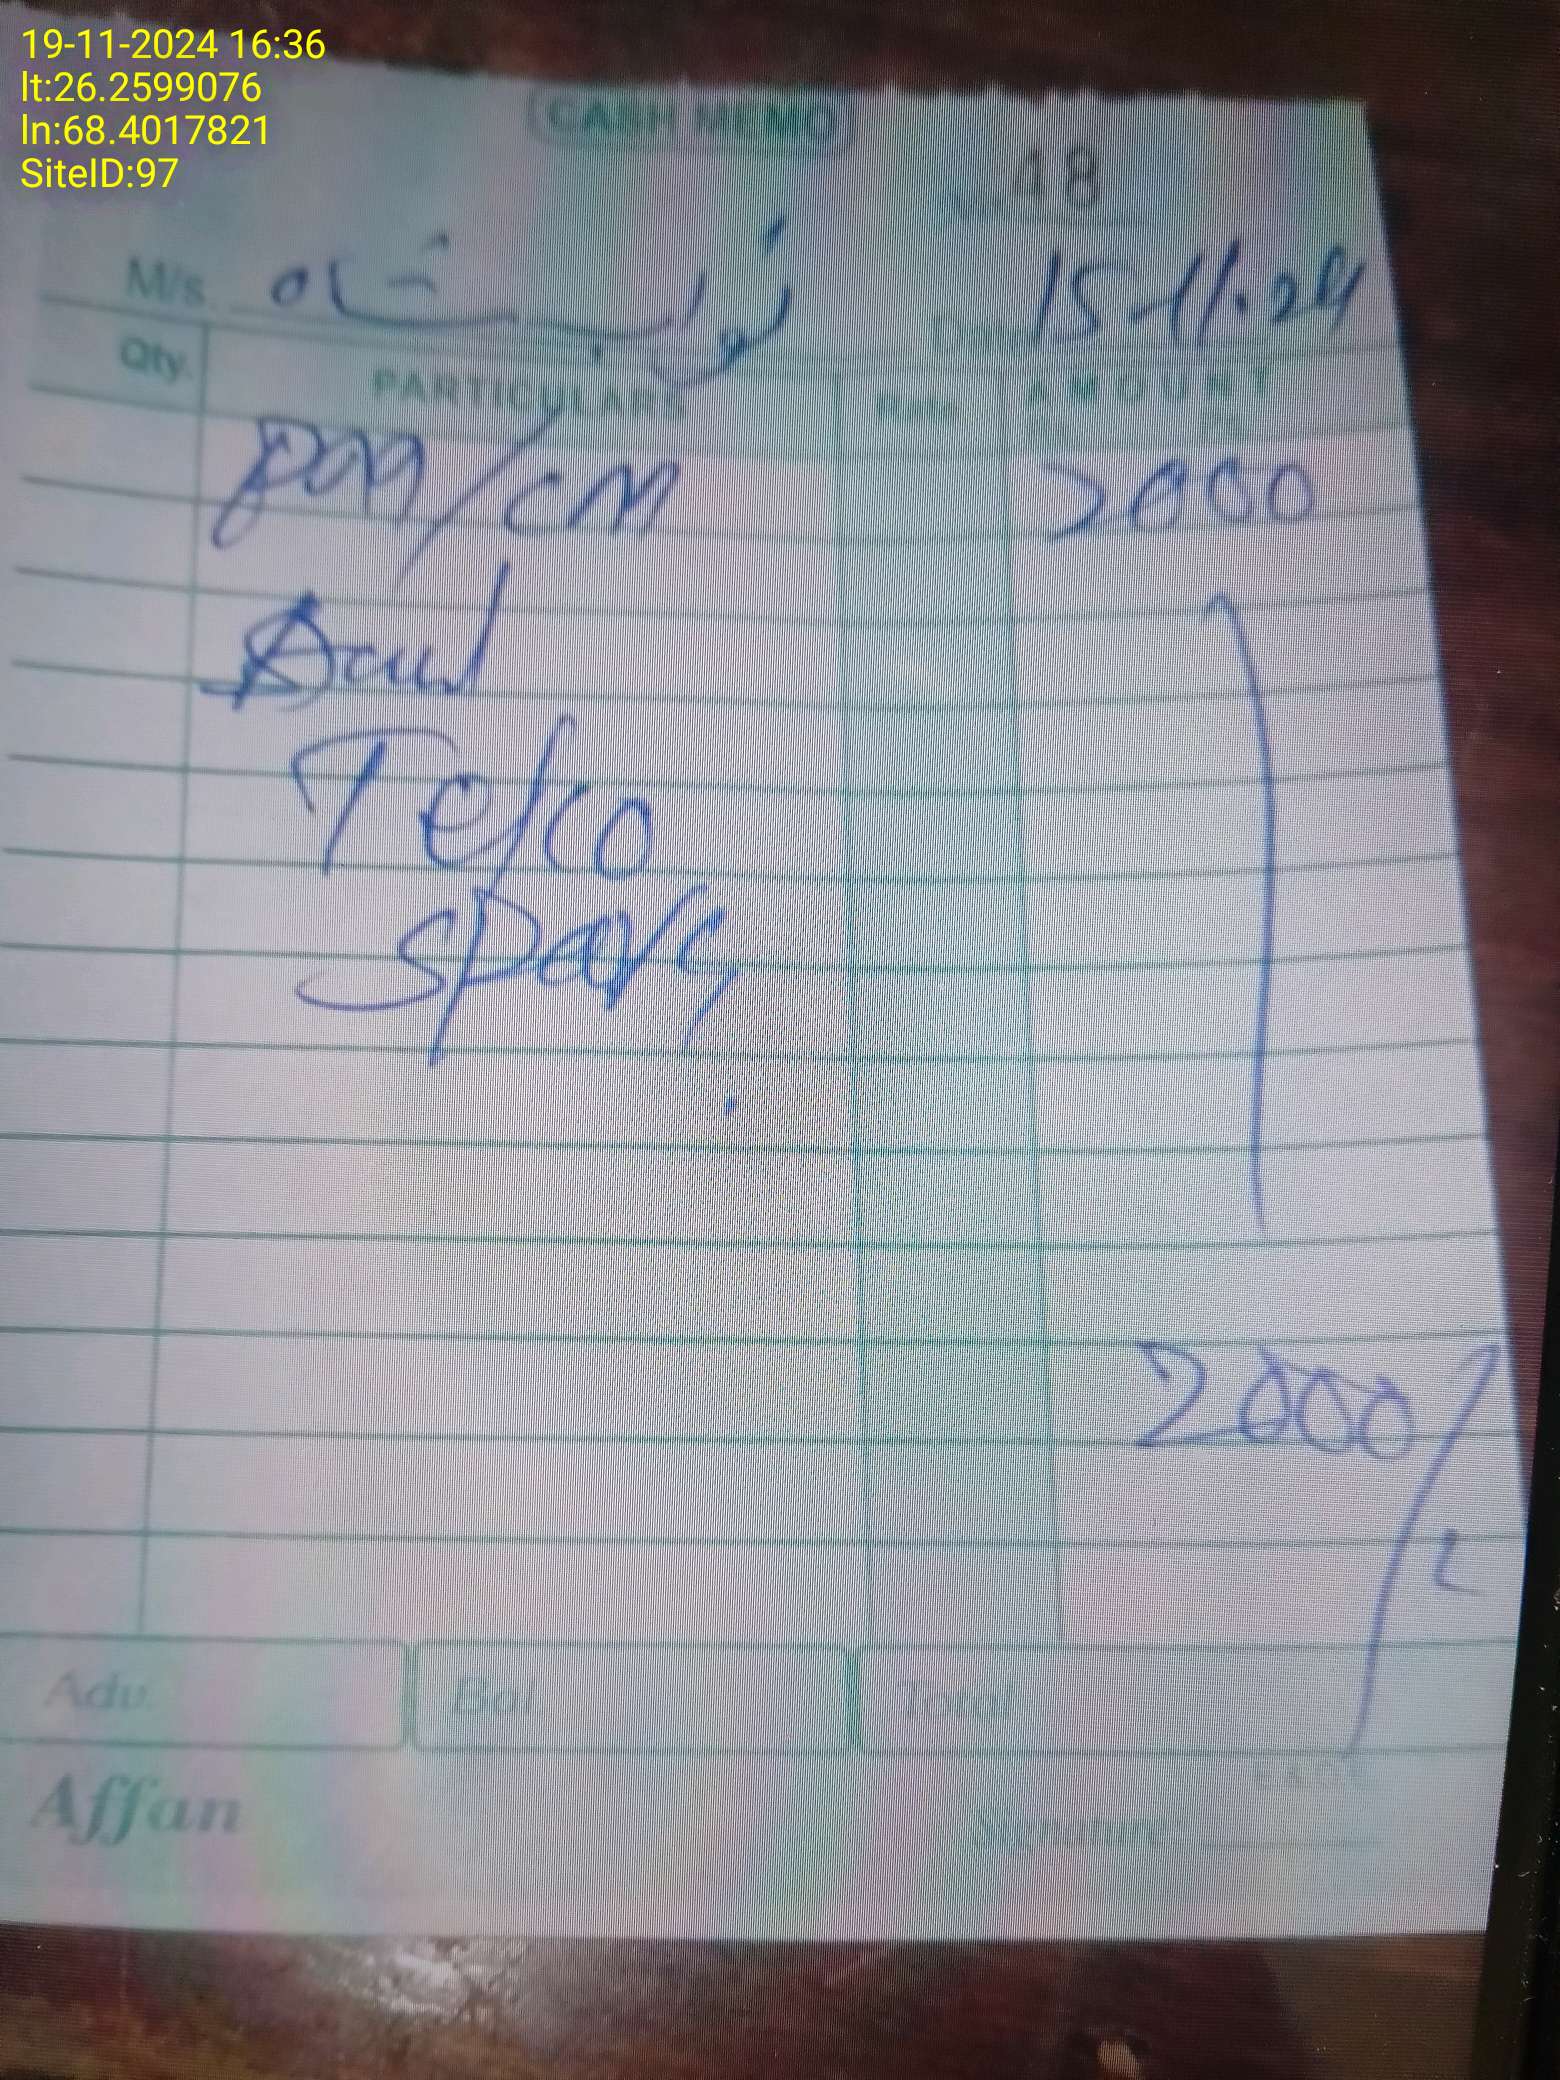 19-11-2024 16:36
lt:26.2599076
ln:68.4017821
SiteID:97
CASH MEMO
No. 48
M/s. نواب شاه
Date 15-11-24
Qty. PARTICULARS Rate AMOUNT
PM/CM 2000
Telco
2000/
Adv. Bal. Total
Affan
Signature